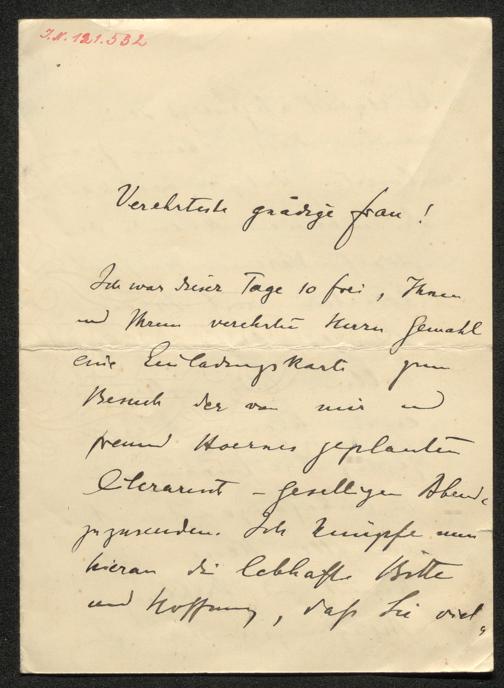 J.N. 121.532
Verehrteste gnädige Frau!
Ich war dieser Tage so frei, Ihnen
und Ihrem verehrten Herrn Gemahl
eine Einladungskarte zum
Besuch der von mir und
Freund Hoernes geplanten
literarisch-geselligen Abende
zuzusenden. Ich knüpfe nun
hieran die lebhafte Bitte
und Hoffnung, daß Sie viel-